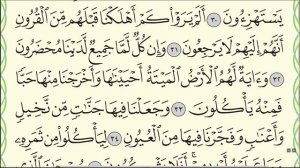 يَسْتَهْزِءُونَ ٣٠ أَلَمْ يَرَوْا۟ كَمْ أَهْلَكْنَا قَبْلَهُم مِّنَ ٱلْقُرُونِ
أَنَّهُمْ إِلَيْهِمْ لَا يَرْجِعُونَ ٣١ وَإِن كُلٌّ لَّمَّا جَمِيعٌ لَّدَيْنَا مُحْضَرُونَ
٣٢ وَءَايَةٌ لَّهُمُ ٱلْأَرْضُ ٱلْمَيْتَةُ أَحْيَيْنَٰهَا وَأَخْرَجْنَا مِنْهَا حَبًّا
فَمِنْهُ يَأْكُلُونَ ٣٣ وَجَعَلْنَا فِيهَا جَنَّٰتٍ مِّن نَّخِيلٍ
وَأَعْنَٰبٍ وَفَجَّرْنَا فِيهَا مِنَ ٱلْعُيُونِ ٣٤ لِيَأْكُلُوا۟ مِن ثَمَرِهِۦ